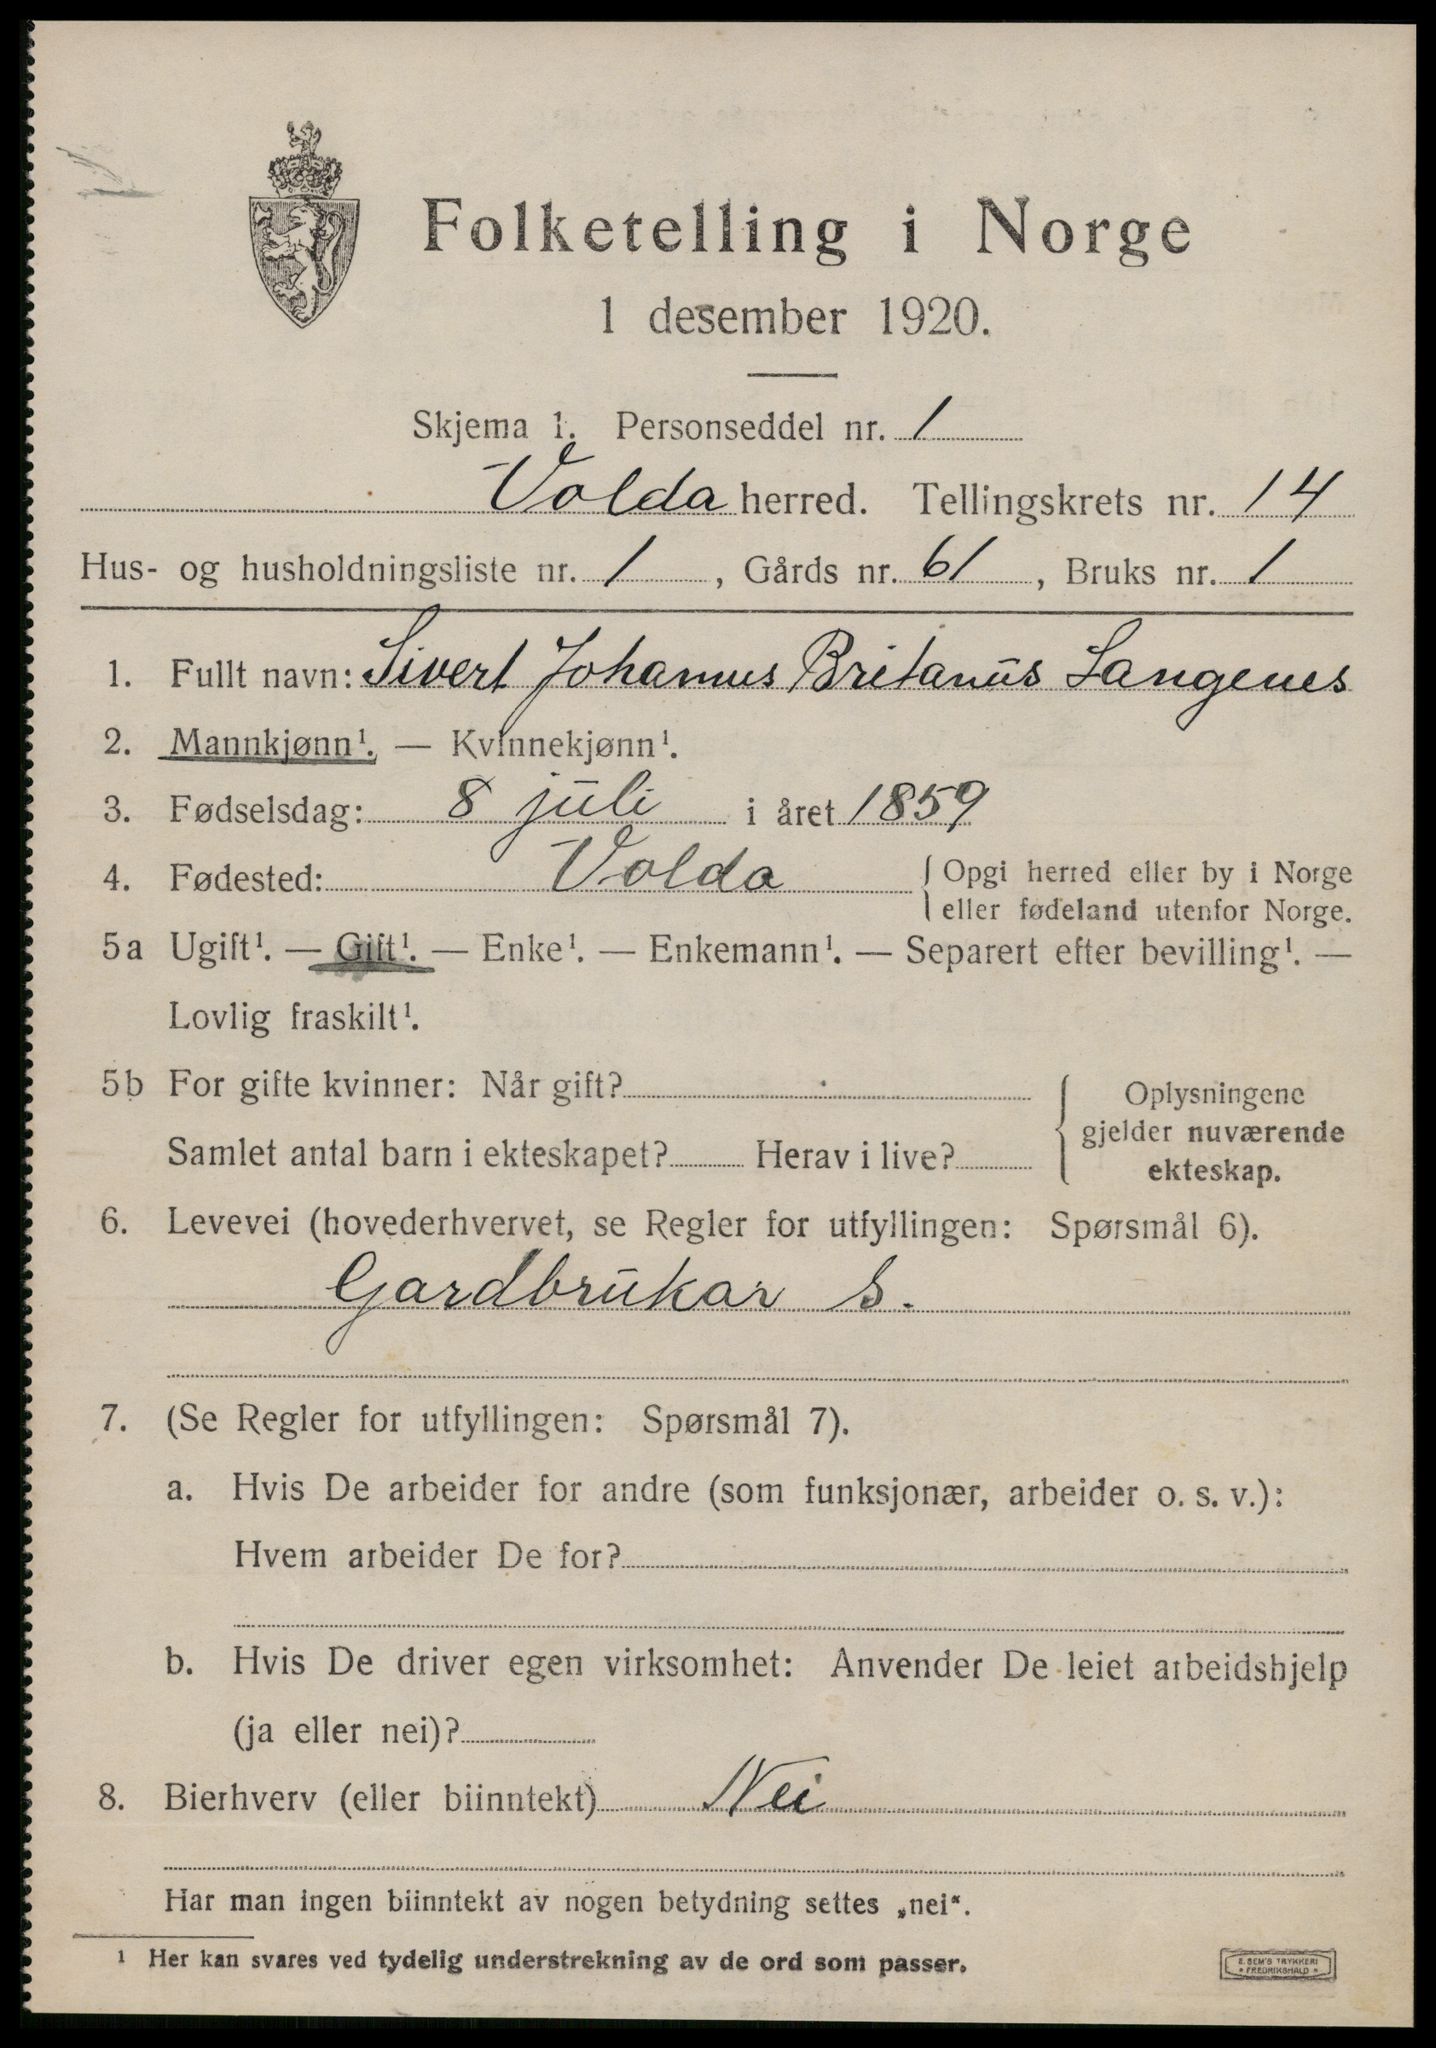 Folketelling i Norge
1 desember 1920.
Skjema 1. Personseddel nr. 1
Volda herred. Tellingskrets nr. 14
Hus- og husholdningsliste nr. 1, Gårds nr. 61, Bruks nr. 1
1. Fullt navn: Sivert Johannus Britanus Langenes
2. Mannkjønn¹. — Kvinnekjønn¹.
3. Fødselsdag: 8 juli i året 1859
4. Fødested: Volda { Opgi herred eller by i Norge
eller fødeland utenfor Norge.
5a Ugift¹. — Gift¹. — Enke¹. — Enkemann¹. — Separert efter bevilling¹. —
Lovlig fraskilt¹.
5b For gifte kvinner: Når gift?
Samlet antal barn i ekteskapet? Herav i live?
{ Oplysningene
gjelder nuværende
ekteskap.
6. Levevei (hovederhvervet, se Regler for utfyllingen: Spørsmål 6).
Gardbrukar S.
7. (Se Regler for utfyllingen: Spørsmål 7).
a. Hvis De arbeider for andre (som funksjonær, arbeider o. s. v.):
Hvem arbeider De for?
b. Hvis De driver egen virksomhet: Anvender De leiet arbeidshjelp
(ja eller nei)?
8. Bierhverv (eller biinntekt) Nei
Har man ingen biinntekt av nogen betydning settes „nei“.
¹ Her kan svares ved tydelig understrekning av de ord som passer.
E. SEM'S TRYKKERI
* FREDRIKSHALD *